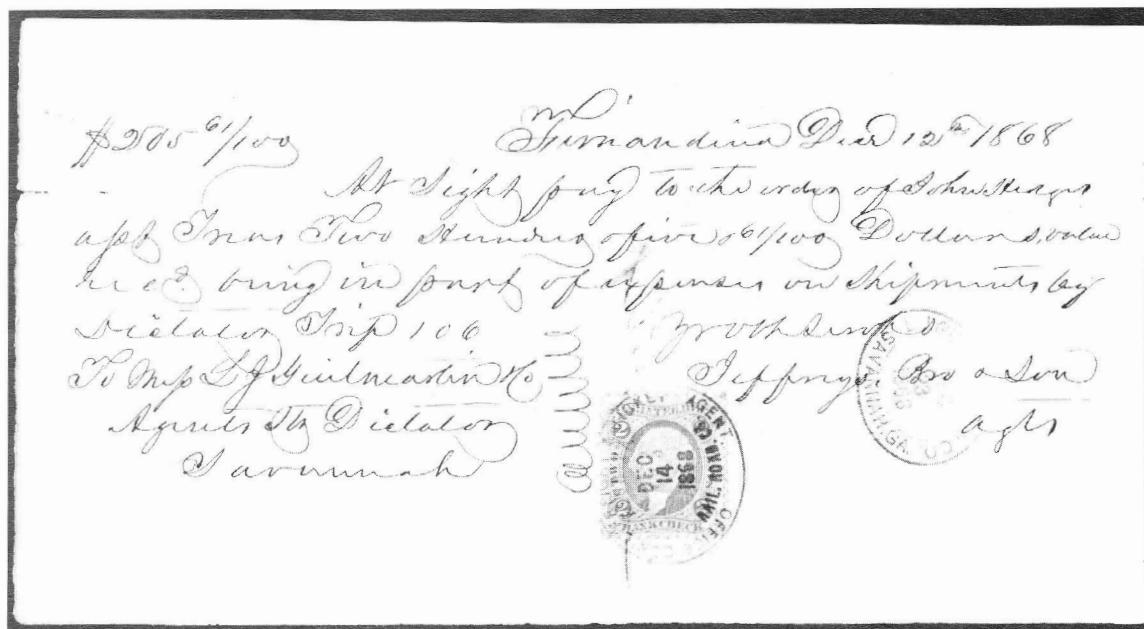 $205 61/100 Fernandina Decr 12th 1868
At Sight pay to the order of John
asst Treas Two Hundred & five & 61/100 Dollars, value
recd. being in part of expenses on Shipments by
Dictator Trip 106 yr obt Servts
To Mess L J Guilmartin & Co Jeffreys Bro & Son
Agents Str Dictator agts
Savannah
TICKET AGENT
DEC
14
1868
RAIL ROAD
OFFI
TWO
BANK CHECK
SAVANNAH, GA.